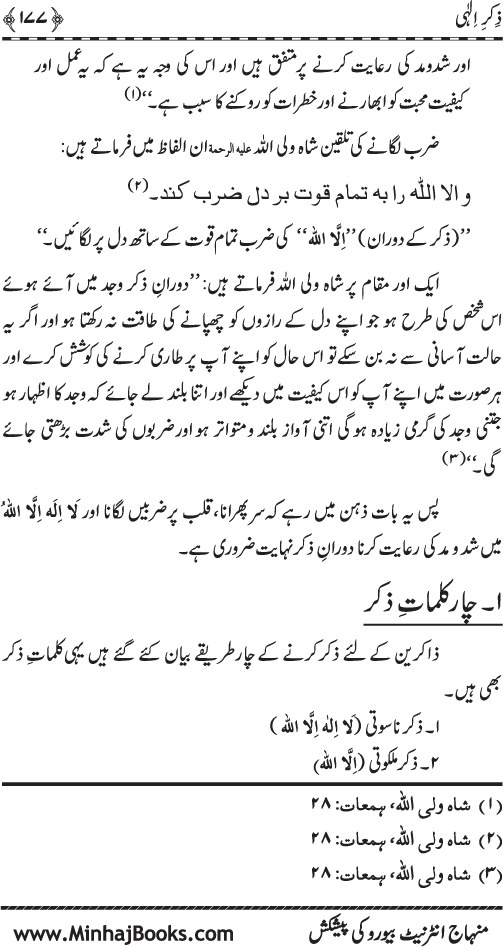 ذِکرِ اِلٰہی ﴿۱۷۷﴾
اور شدومد کی رعایت کرنے پر متفق ہیں اور اس کی وجہ یہ ہے کہ یہ عمل اور
کیفیت محبت کو ابھارنے اور خطرات کو روکنے کا سبب ہے۔‘‘(۱)
ضرب لگانے کی تلقین شاہ ولی اللہ علیہ الرحمۃ ان الفاظ میں فرماتے ہیں:
و الا الله را به تمام قوت بر دل ضرب کند۔(۲)
’’(ذکر کے دوران) ’’اِلَّا الله‘‘ کی ضرب تمام قوت کے ساتھ دل پر لگائیں۔‘‘
ایک اور مقام پر شاہ ولی اللہ فرماتے ہیں: ’’دورانِ ذکر وجد میں آئے ہوئے
اس شخص کی طرح ہو جو اپنے دل کے رازوں کو چھپانے کی طاقت نہ رکھتا ہو اور اگر یہ
حالت آسانی سے نہ بن سکے تو اس حال کو اپنے آپ پر طاری کرنے کی کوشش کرے اور
ہر صورت میں اپنے آپ کو اس کیفیت میں دیکھے اور اتنا بلند لے جائے کہ وجد کا اظہار ہو
جتنی وجد کی گرمی زیادہ ہوگی اتنی آواز بلند و متواتر ہو اور ضربوں کی شدت بڑھتی جائے
گی۔‘‘(۳)
پس یہ بات ذہن میں رہے کہ سر پھرانا، قلب پر ضربیں لگانا اور لَا اِلٰهَ اِلَّا اللهُ
میں شد و مد کی رعایت کرنا دورانِ ذکر نہایت ضروری ہے۔
۱۔ چار کلماتِ ذکر
ذاکرین کے لئے ذکر کرنے کے چار طریقے بیان کئے گئے ہیں یہی کلماتِ ذکر
بھی ہیں۔
۱۔ ذکر ناسوتی (لَا اِلٰهَ اِلَّا الله)
۲۔ ذکر ملکوتی (اِلَّا الله)
(۱) شاہ ولی اللہ، ہمعات: ۲۸
(۲) شاہ ولی اللہ، ہمعات: ۲۸
(۳) شاہ ولی اللہ، ہمعات: ۲۸
منہاج انٹرنیٹ بیورو کی پیشکش www.MinhajBooks.com